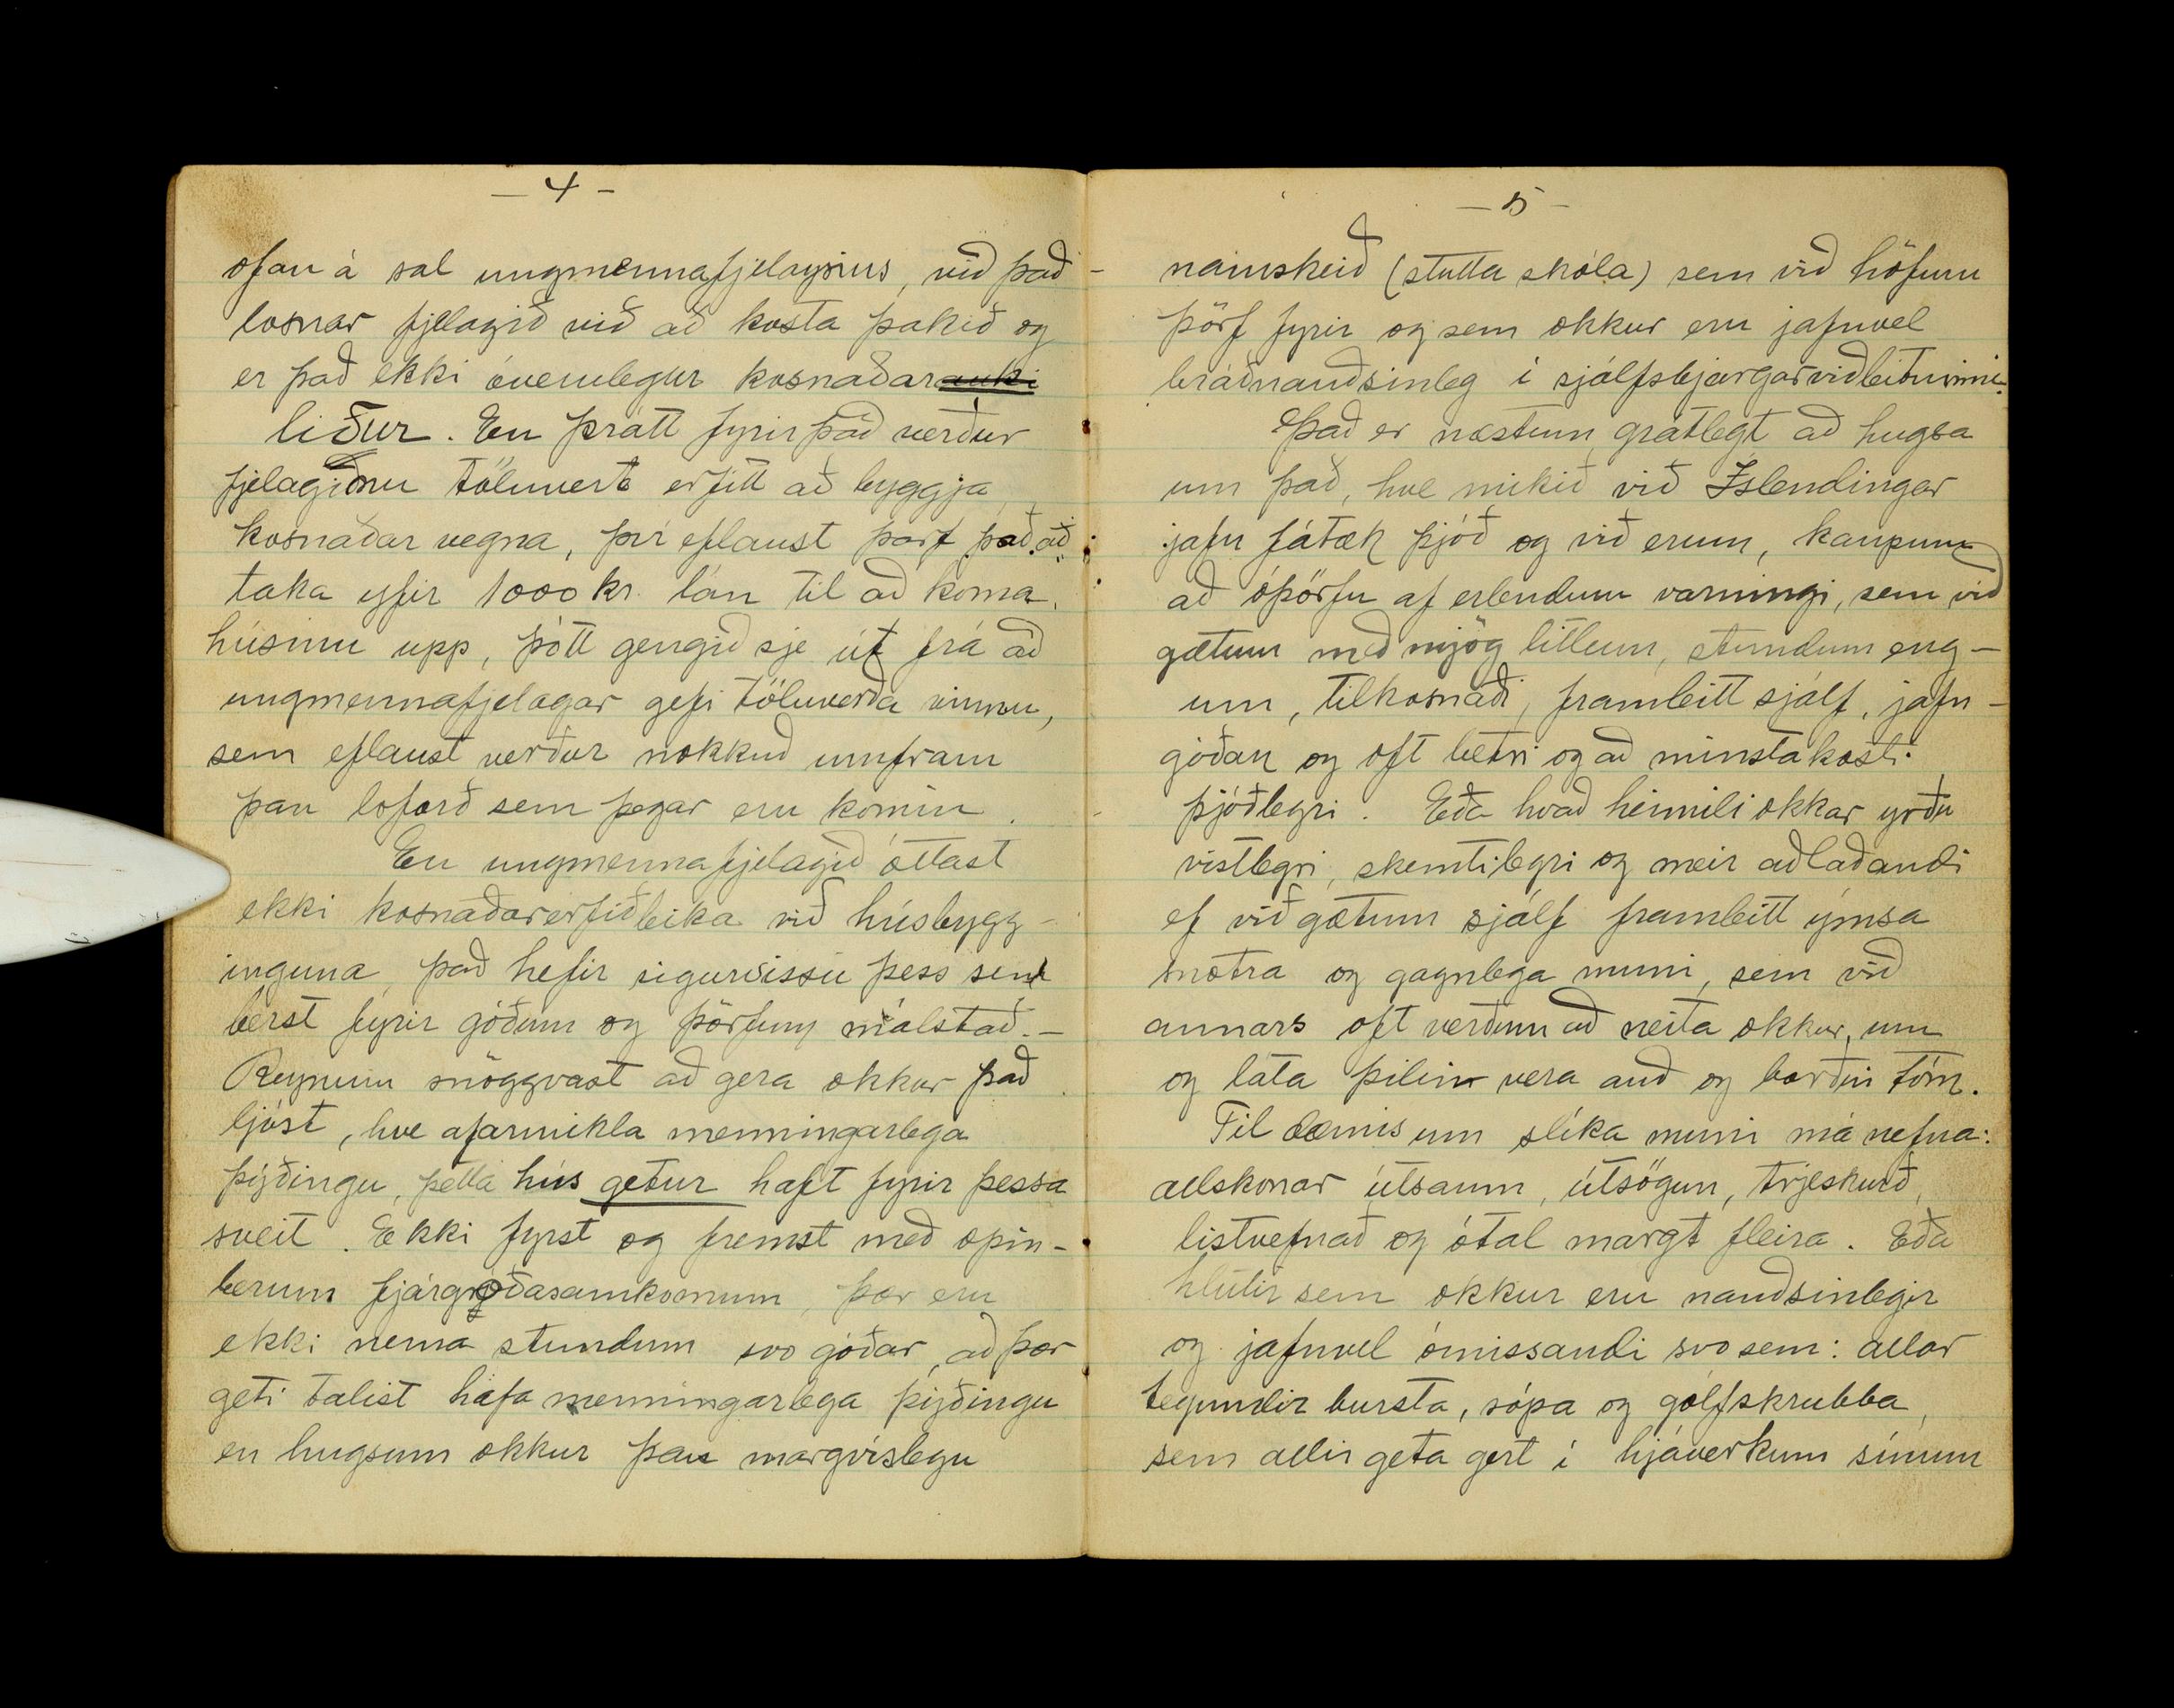 - 4 -
ofan á sal ungmennafjelagsins, við það
losnar fjelagið við að kosta þakið og
er það ekki óverulegur kosnaðarauki
liður. En þrátt fyrir það verður
fjelaginu töluvert erfitt að byggja
kosnaðar vegna, því eflaust þarf það að
taka yfir 1000 kr. lán til að koma
húsinu upp, þótt gengið sje út frá að
ungmennafjelagar gefi töluverða vinnu,
sem eflaust verður nokkuð umfram
þau loforð sem þegar eru komin.
En ungmennafjelagið óttast
ekki kosnaðarerfiðleika við húsbygg-
inguna, það hefir sigurvissu þess sem
berst fyrir góðum og þörfum málstað. -
Reynum snöggvast að gera okkur það
ljóst, hve afarmikla menningarlega
þýðingu, þetta hús getur haft fyrir þessa
sveit. Ekki fyrst og fremst með opin-
berum fjárgróðasamkomum þær eru
ekki nema stundum svo góðar, að þær
geti talist hafa menningarlega þýðingu
en hugsum okkur þau margvíslegu
- 5 -
námskeið (stutta skóla) sem við höfum
þörf fyrir og sem okkur eru jafnvel
bráðnauðsinleg í sjálfsbjargarviðleitninni.
Það er næstum grátlegt að hugsa
um það, hve mikið við Íslendingar
jafn fátæk þjóð og við erum, kaupum
að óþörfu af erlendum varningi, sem við
gætum með mjög litlum, stundum eng-
um, tilkosnaði, framleitt sjálf, jafn-
góðan og oft betri og að minstakosti
þjóðlegri. Eða hvað heimili okkar yrðu
vistlegri, skemtilegri og meir aðlaðandi
ef við gætum sjálf framleitt ýmsa
snotra og gagnlega muni, sem við
annars oft verðum að neita okkur um
og láta þilin vera auð og borðin tóm.
Til dæmis um slíka muni má nefna:
allskonar útsaum, útsögun, trjeskurð,
listvefnað og ótal margt fleira. Eða
hlutir sem okkur eru nauðsinlegir
og jafnvel ómissandi svo sem: allar
tegundir bursta, sópa og gólfskrubba,
sem allir geta gert í hjáverkum sínum